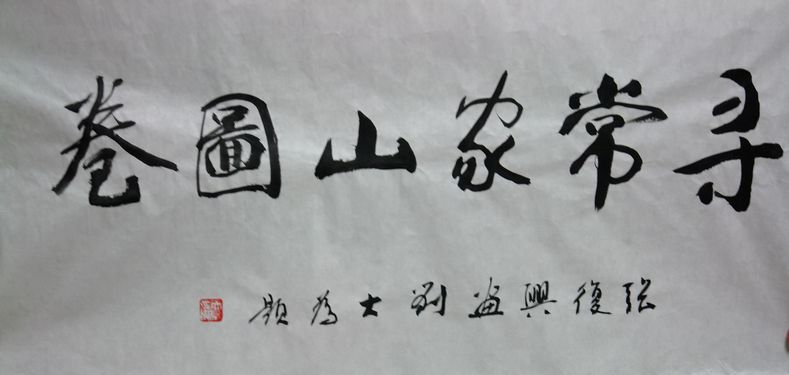 寻常家山圖卷
張復興畫劉大為題